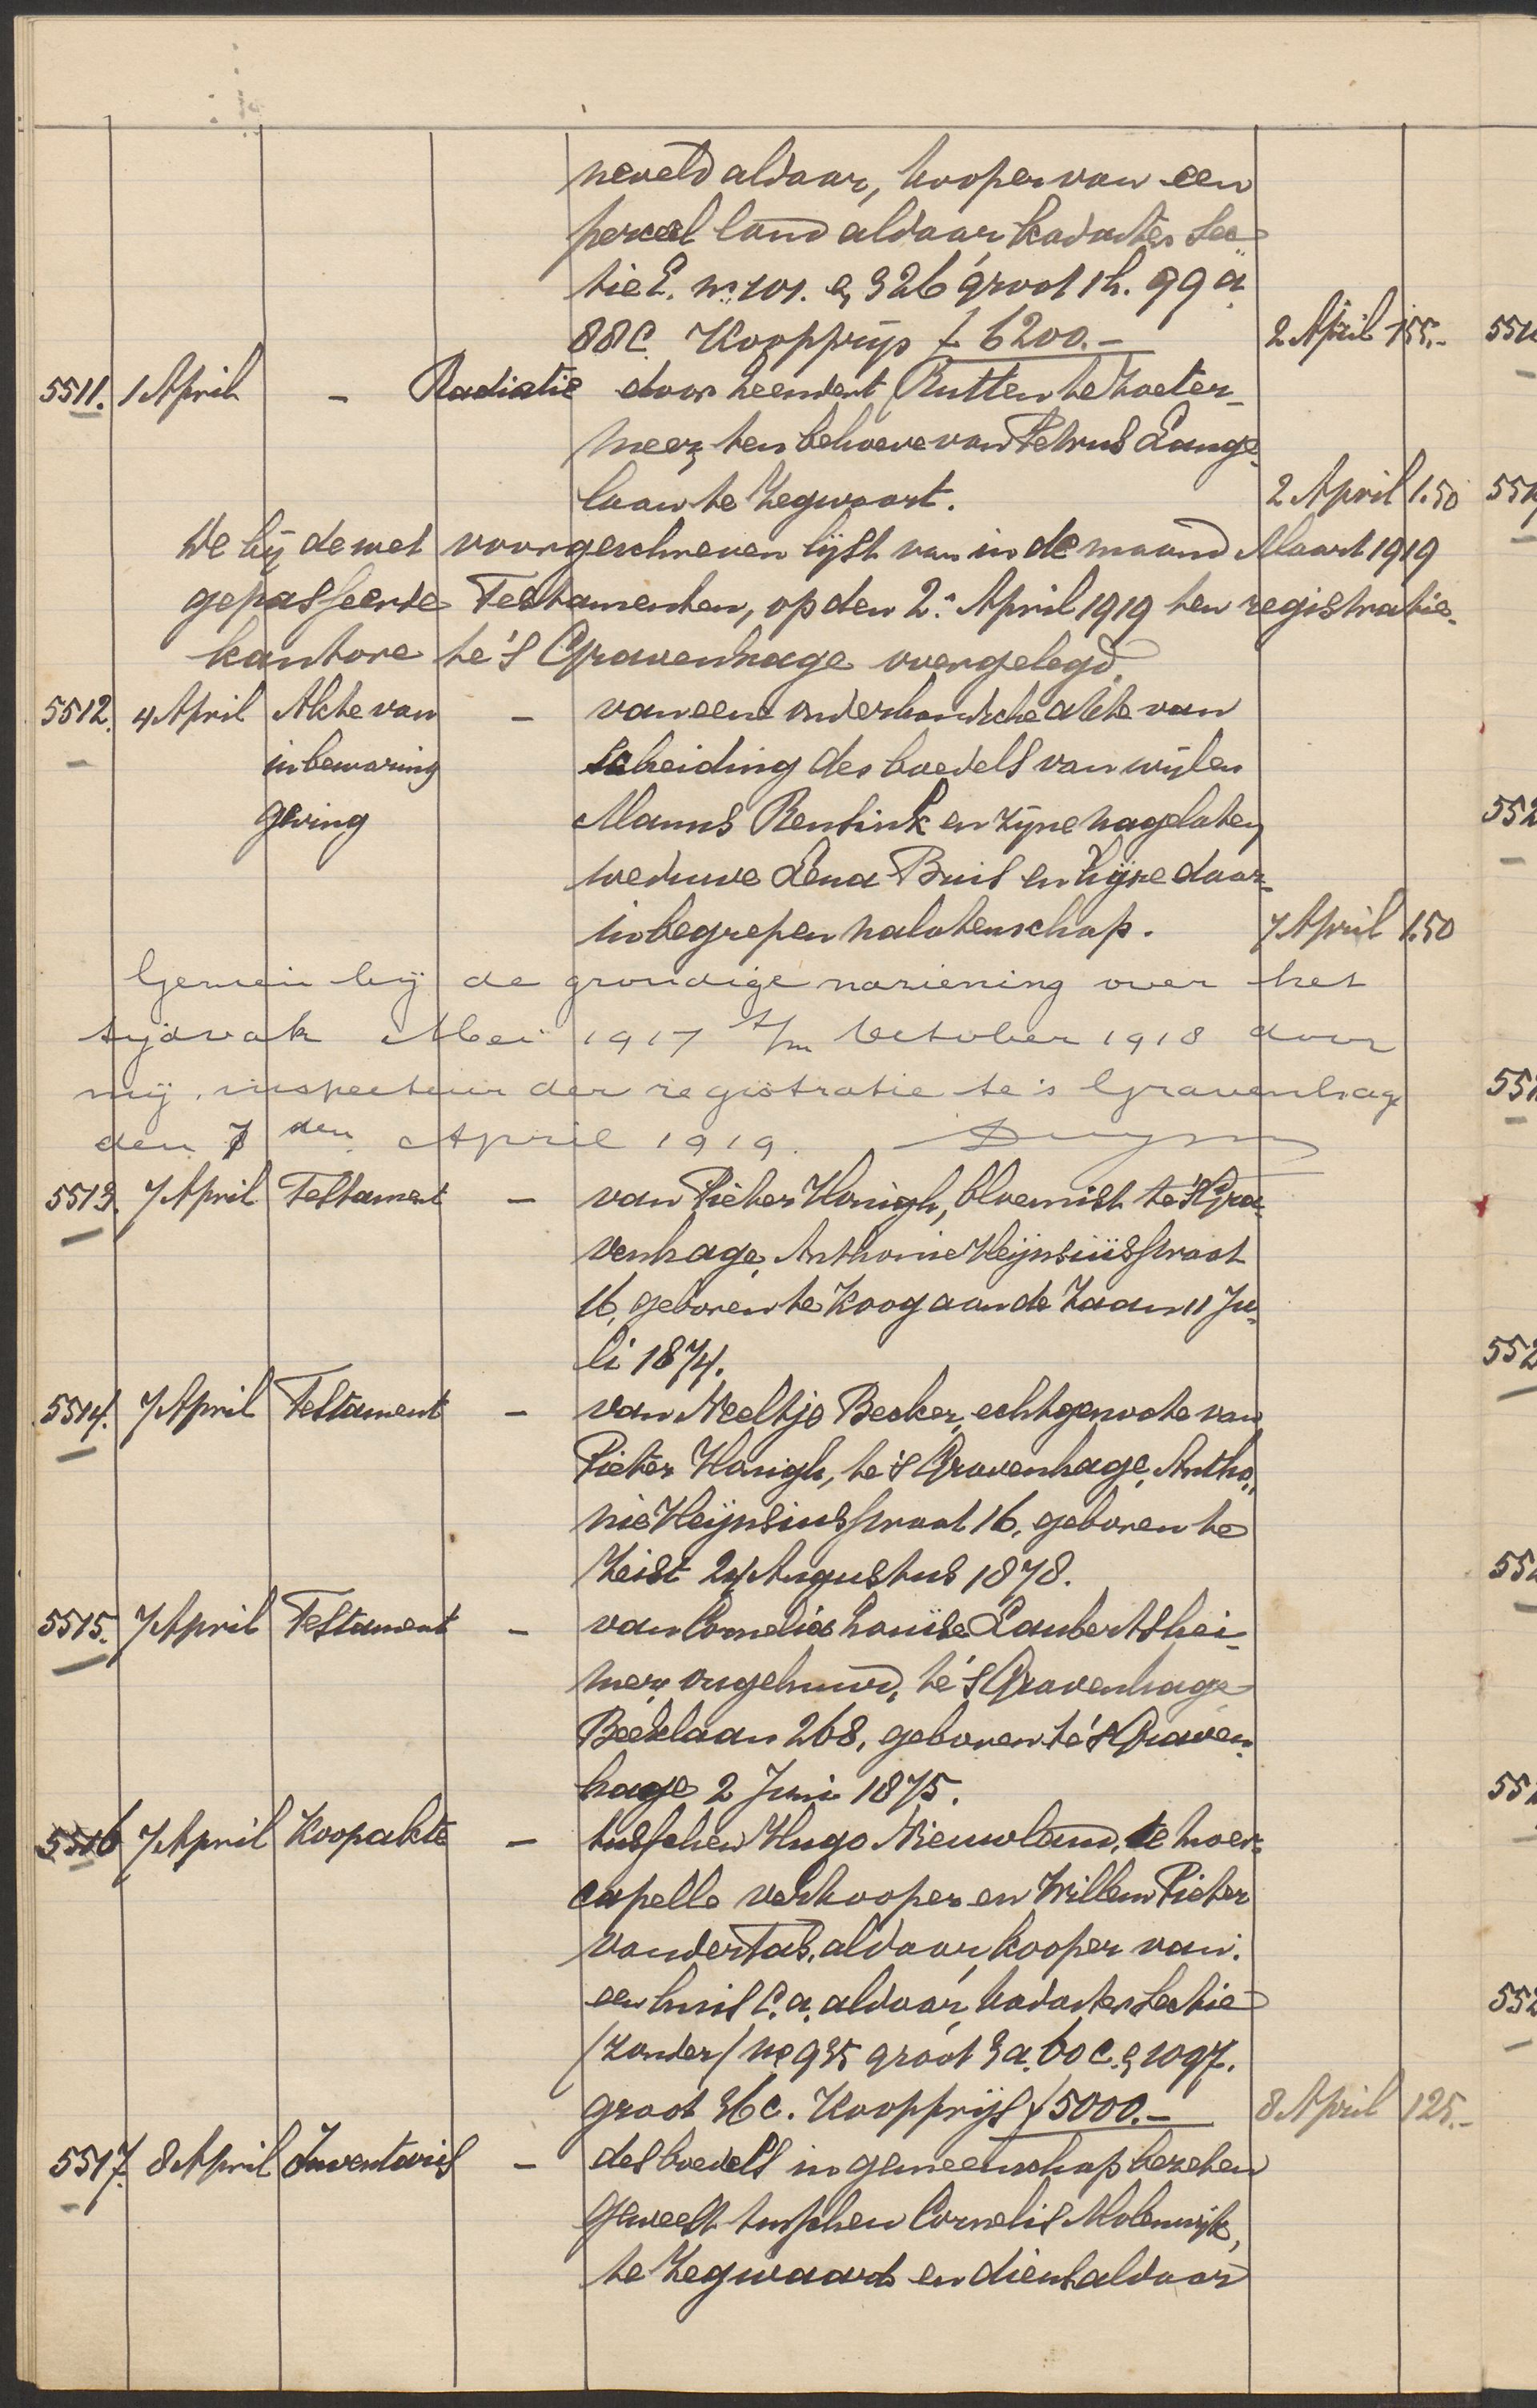 neveld aldaar, kooper van een
perceel land aldaar, kadaster Sec
tie E. nos. 101. & 326 groot 1 h. 99 a.
88 c. Koopprijs f 6200.- 2 April 155.-
5511. 1 April - Radiatie door Leendert Rutten te Zoeter-
meer, ten behoeve van Petrus Lange-
laan te Zegwaart. 2 April 1.50
De bij de wet voorgeschreven lijst van in de maand Maart 1919
gepasseerde Testamenten, op den 2e April 1919 ten registratie-
kantore te 's Gravenhage overgelegd.
5512. 4 April Akte van - van eene onderhandsche akte van
inbewaring scheiding des boedels van wijlen
geving Manus Rensink en zijne nagelaten
weduwe Lena Buis en hijre daar-
in begrepen nalatenschap. 7 April 1.50
Gezien bij de grondige naziening over het
tijdvak Mei 1917 t/m October 1918 door
mij, inspecteur der registratie te 's Gravenhage
den 7 den April 1919.
5513. 7 April Testament - van Pieter Honigh, bloemist te 's Gra-
venhage, Anthonie Heijnsiusstraat
16, geboren te Koog aan de Zaan 11 Ju-
li 1874.
5514. 7 April Testament - van Neeltje Becker, echtgenoote van
Pieter Honigh, te 's Gravenhage, Antho-
nie Heijnsiusstraat 16, geboren te
Zeist 24 Augustus 1878.
5515. 7 April Testament - van Cornelia Louise Laubertshei-
mer, ongehuwd, te 's Gravenhage
Beeklaan 268, geboren te 's Graven-
hage 2 Juni 1875.
5516 7 April Koopakte - tusschen Hugo Nieuwland, te Moer-
capelle verkooper en Willem Pieter
van der Tas, aldaar, kooper van:
een huis c.a. aldaar, kadaster Sectie
(zonder) no 935 groot 3 a. 60 c. & 1097.
groot 36 c. Koopprijs f 5000.- 8 April 125.-
5517. 8 April Inventaris - des boedels in gemeenschap bezeten
geweest tusschen Cornelis Molenwijk,
te Zegwaart en diens aldaar